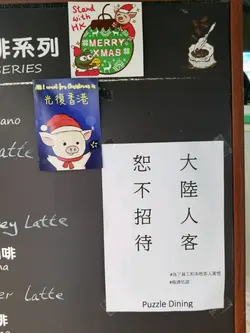 Stand
with
HK
MERRY
XMAS
啡系列
SERIES
All I want for Christmas is
光復香港
ano
Latte
ey Latte
啡
na
er Latte
大陸人客
恕不招待
Puzzle Dining